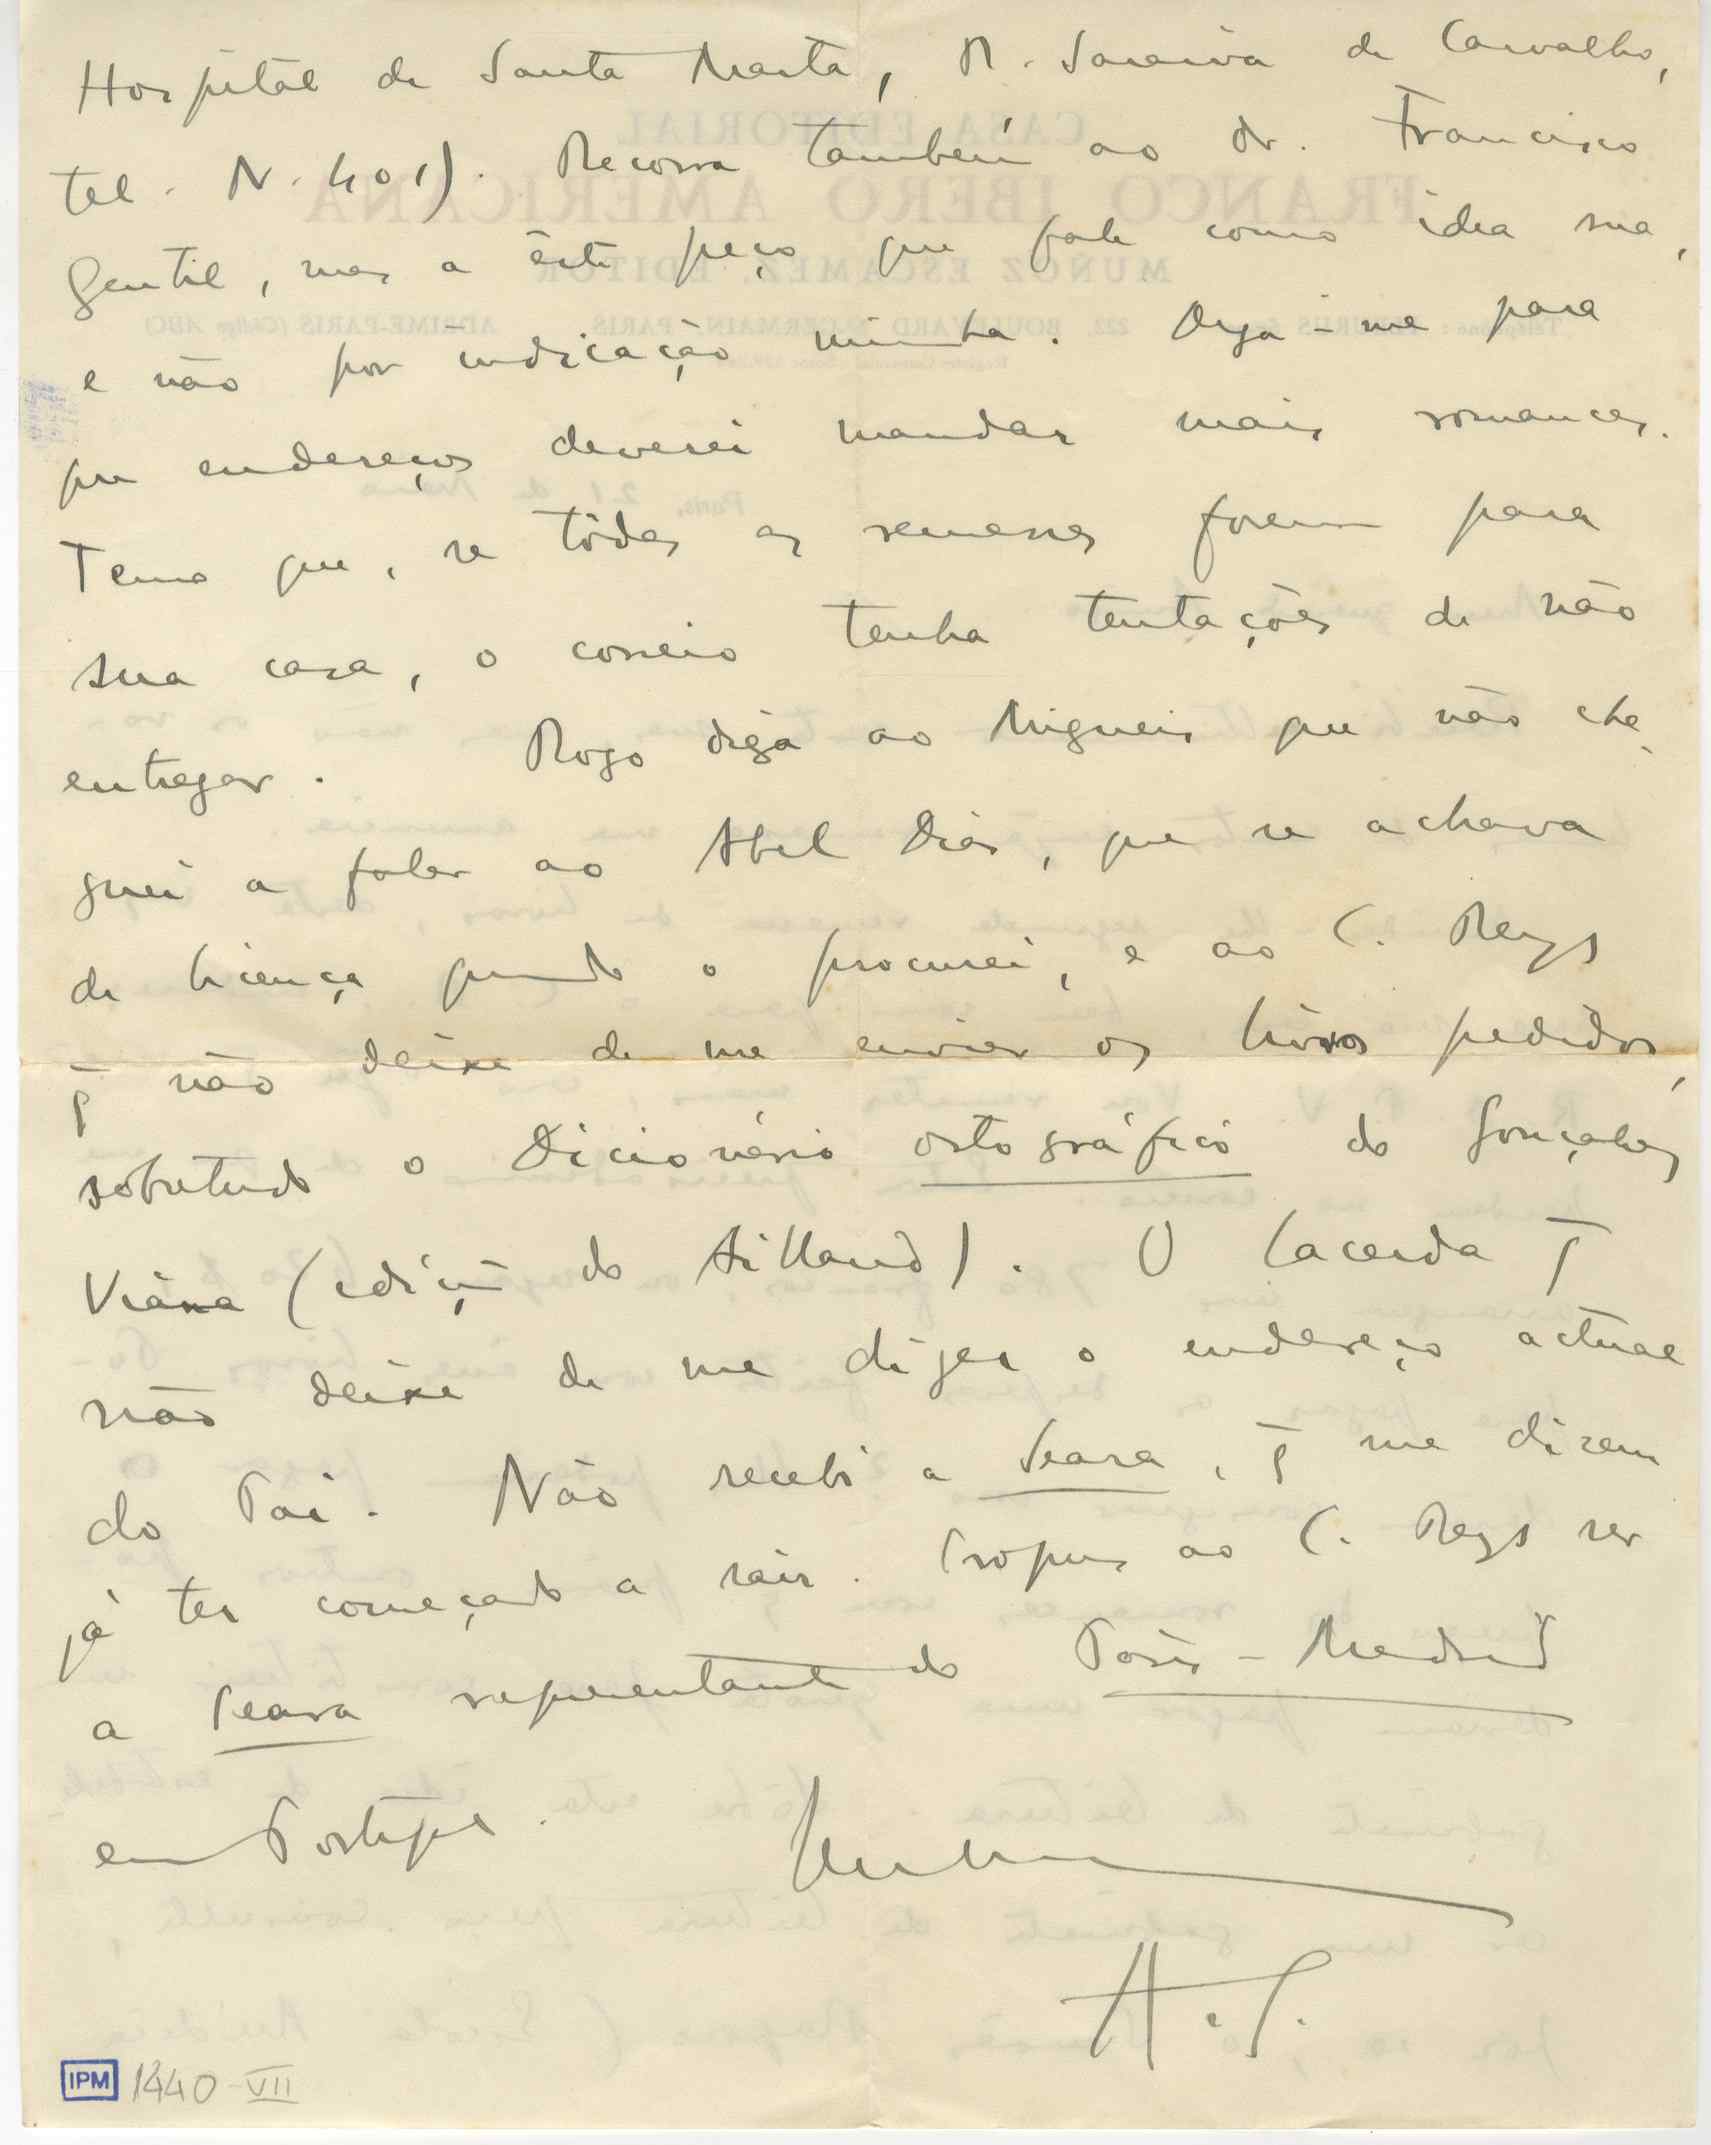 Hospital de Santa Marta, R. Saraiva de Carvalho,
tel. N. 401). Recorra também ao dr. Francisco
Gentil, mas a êste peço que fale como idea sua,
e não por indicação minha. Diga-me para
que endereços deverei mandar mais romances.
Temo que, se tôdas as remessas forem para
sua casa, o correio tenha tentações de não
entregar. Rogo diga ao Migueis que não che-
guei a falar ao Abel Dias, que se achava
de licença quando o procurei, e ao C. Reys
q̄ não deixe de me enviar os livros pedidos,
sobretudo o Dicionário ortográfico do Gonçalves
Viana (edição do Aillaud). O Lacerda q̄
não deixe de me dizer o endereço actual
do Pai. Não recebi a Seara, q̄ me dizem
já ter começado a sair. Propus ao C. Reys ser
a Seara representante do Paris-Madrid
em Portugal.
A. S.
IPM 1440-VII
CASA EDITORIAL
FRANCO IBERO AMERICANA
MUÑOZ ESCÁMEZ, EDITOR
222, BOULEVARD St-GERMAIN, PARIS
ADRIME-PARIS (Código ABC)
Paris, 21 de Maio